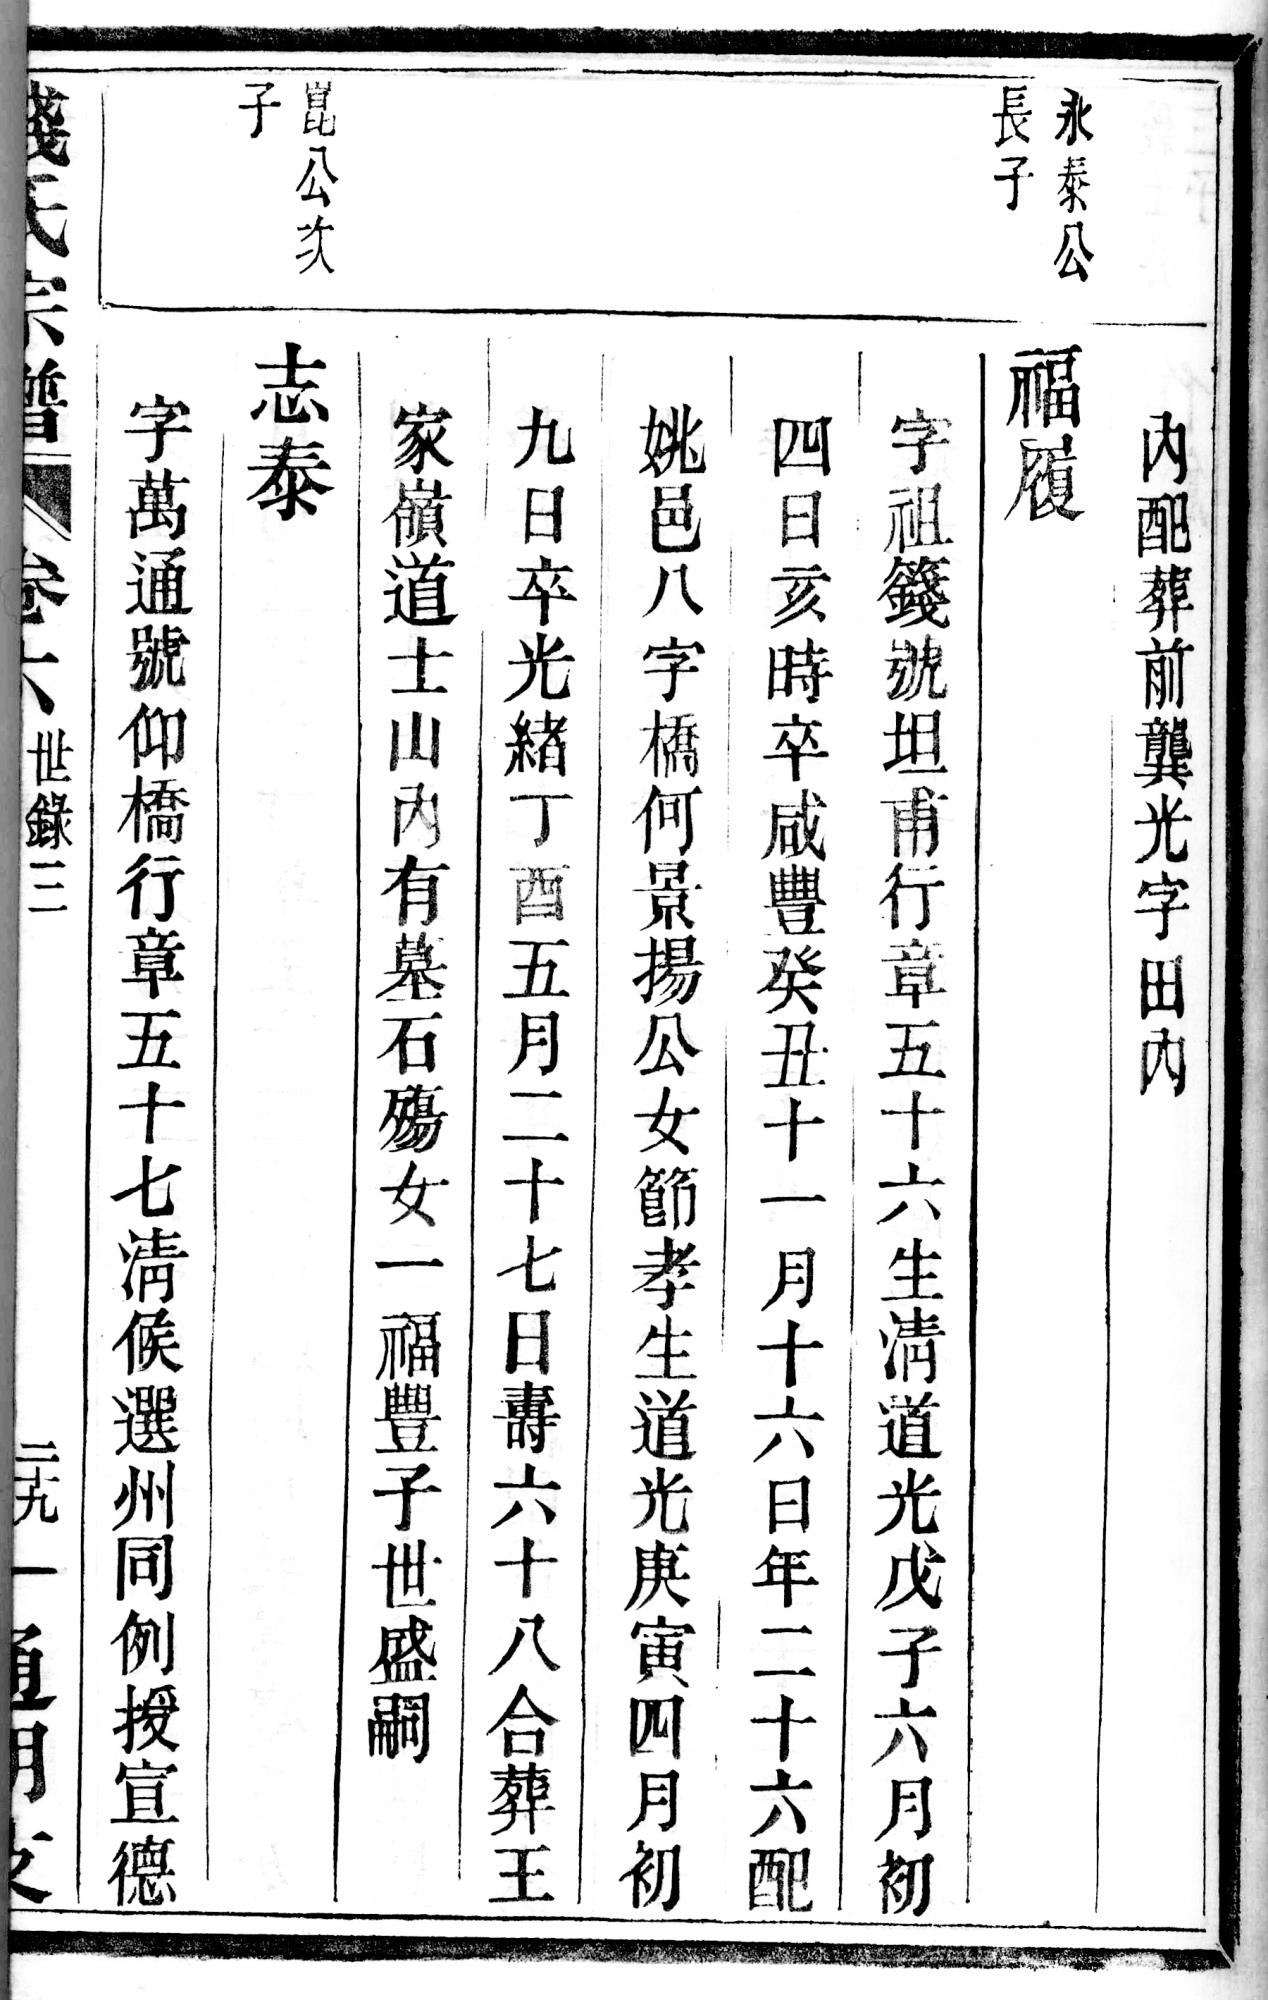 內配葬前龔光字田內
永泰公
長子
福履
字祖籛號坦甫行章五十六生淸道光戊子六月初
四日亥時卒咸豐癸丑十一月十六日年二十六配
姚邑八字橋何景揚公女節孝生道光庚寅四月初
九日卒光緒丁酉五月二十七日壽六十八合葬王
家嶺道士山內有墓石殤女一福豐子世盛嗣
崑公次
子
志泰
字萬通號仰橋行章五十七淸候選州同例授宣德
錢氏宗譜 卷六 世錄三 二十九 通明支